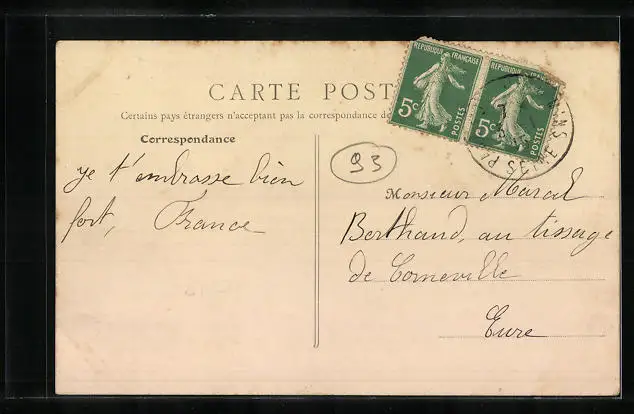 CARTE POST
Certains pays étrangers n'acceptant pas la correspondance de
Correspondance
je t'embrasse bien
fort, France
REPUBLIQUE FRANÇAISE
5c POSTES
REPUBLIQUE FRANÇAISE
5c POSTES
93
Monsieur Marcel
Berthaud, au tissage
de Corneville
Eure